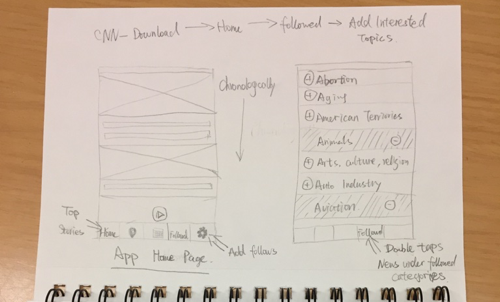 CNN-Download → Home → followed → Add Interested
Topics
Chronologically
Top
Stories
Home
Followed
Add follows
App Home Page.
Abortion
Aging
American Territories
Animals
Arts, culture, religion
Auto Industry
Aviation
Followed
Double taps
News under followed
categories